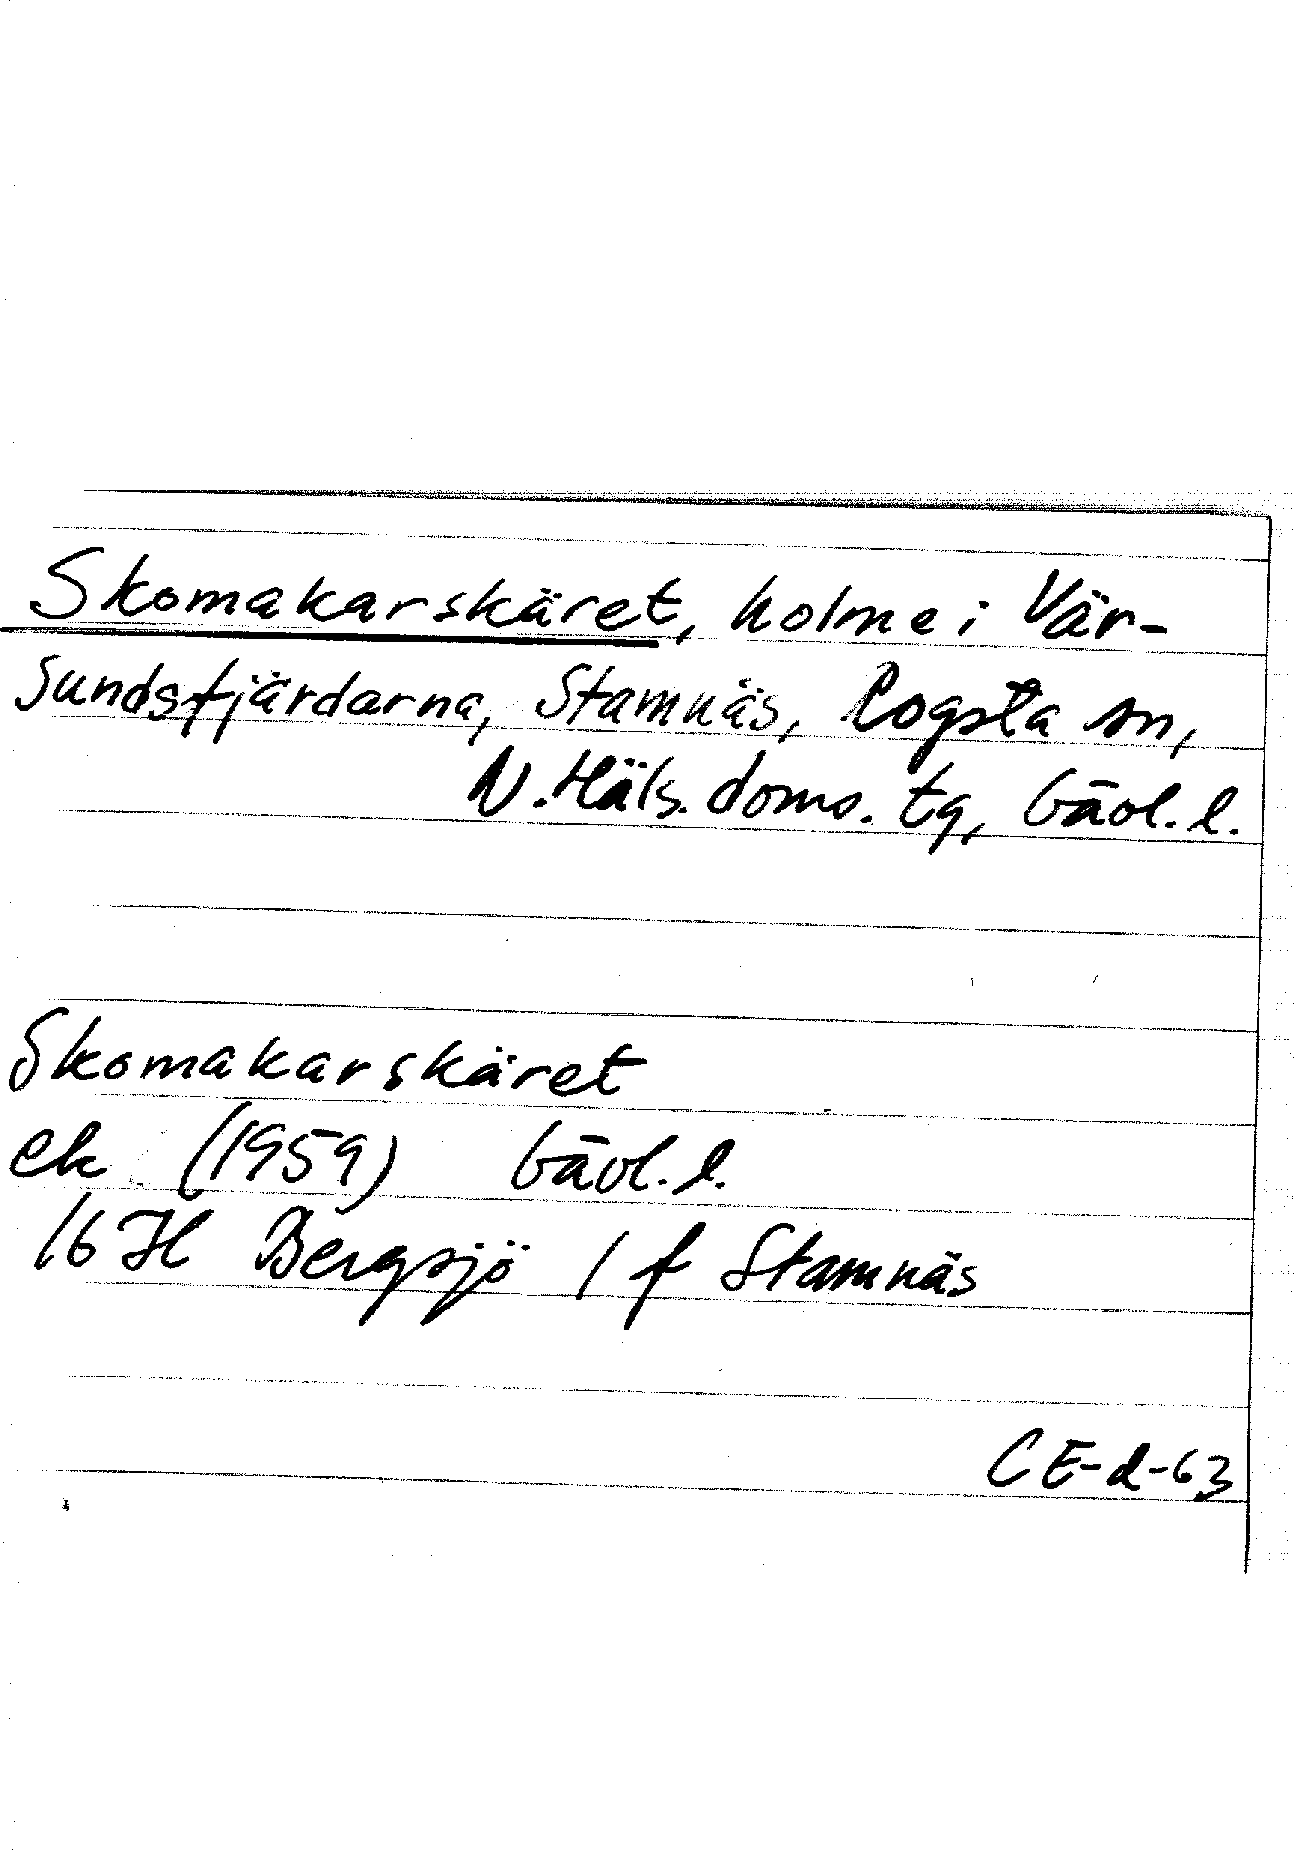 Skomakarskäret, holme i Vär-
sundsfjärdarna, Stamnäs, Rogsta sn,
N. Häls. doms. tg, Gävl. l.
Skomakarskäret
ek (1959) Gävl. l.
16 H Bergsjö 1 f Stamnäs
CE-d-63